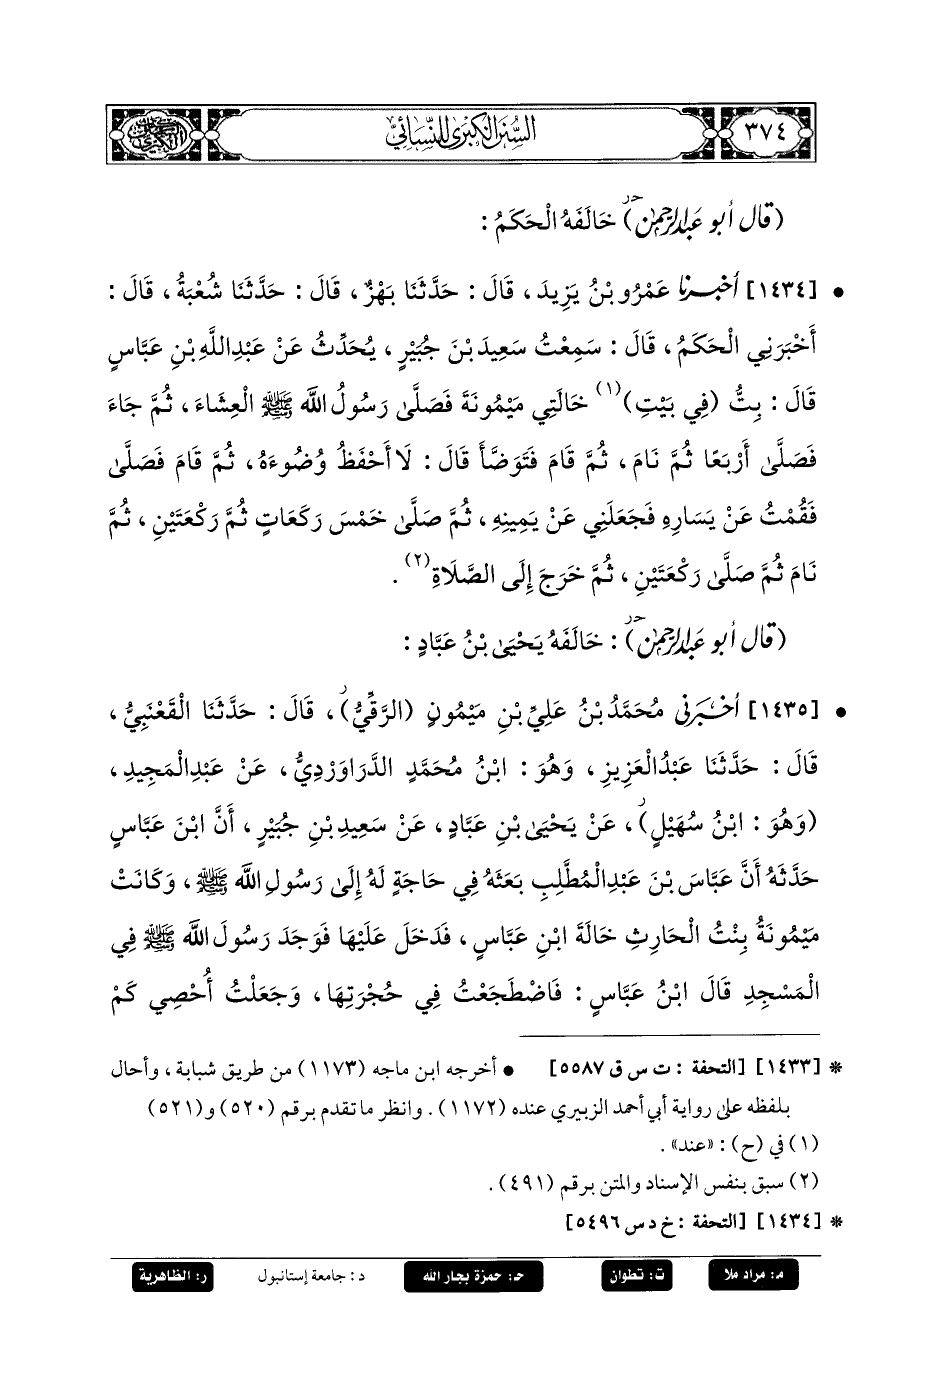 ٣٧٤
السُّنَنُ الكُبْرَىٰ لِلنَّسَائِيّ
(قال أبو عبد الرحمن)حر خَالَفَهُ الْحَكَمُ :
• [١٤٣٤] أخبرنا عَمْرُو بْنُ يَزِيدَ ، قَالَ : حَدَّثَنَا بَهْزٌ ، قَالَ : حَدَّثَنَا شُعْبَةُ ، قَالَ :
أَخْبَرَنِي الْحَكَمُ ، قَالَ : سَمِعْتُ سَعِيدَ بْنَ جُبَيْرٍ ، يُحَدِّثُ عَنْ عَبْدِاللَّهِ بْنِ عَبَّاسٍ
قَالَ : بِتُّ (فِي بَيْتِ)(١) خَالَتِي مَيْمُونَةَ فَصَلَّىٰ رَسُولُ اللَّه ﷺ الْعِشَاءَ ، ثُمَّ جَاءَ
فَصَلَّىٰ أَرْبَعًا ثُمَّ نَامَ ، ثُمَّ قَامَ فَتَوَضَّأَ قَالَ : لَا أَحْفَظُ وُضُوءَهُ ، ثُمَّ قَامَ فَصَلَّىٰ
فَقُمْتُ عَنْ يَسَارِهِ فَجَعَلَنِي عَنْ يَمِينِهِ ، ثُمَّ صَلَّىٰ خَمْسَ رَكَعَاتٍ ثُمَّ رَكْعَتَيْنِ ، ثُمَّ
نَامَ ثُمَّ صَلَّىٰ رَكْعَتَيْنِ ، ثُمَّ خَرَجَ إِلَى الصَّلَاةِ(٢) .
(قال أبو عبد الرحمن)حر : خَالَفَهُ يَحْيَىٰ بْنُ عَبَّادٍ :
• [١٤٣٥] أخبرني مُحَمَّدُ بْنُ عَلِيِّ بْنِ مَيْمُونٍ (الرَّقِّيُّ)ر ، قَالَ : حَدَّثَنَا الْقَعْنَبِيُّ ،
قَالَ : حَدَّثَنَا عَبْدُالْعَزِيزِ ، وَهُوَ : ابْنُ مُحَمَّدٍ الدَّرَاوَرْدِيُّ ، عَنْ عَبْدِالْمَجِيدِ ،
(وَهُوَ : ابْنُ سُهَيْلٍ)ر ، عَنْ يَحْيَىٰ بْنِ عَبَّادٍ ، عَنْ سَعِيدِ بْنِ جُبَيْرٍ ، أَنَّ ابْنَ عَبَّاسٍ
حَدَّثَهُ أَنَّ عَبَّاسَ بْنَ عَبْدِالْمُطَّلِبِ بَعَثَهُ فِي حَاجَةٍ لَهُ إِلَىٰ رَسُولِ اللَّه ﷺ ، وَكَانَتْ
مَيْمُونَةُ بِنْتُ الْحَارِثِ خَالَةَ ابْنِ عَبَّاسٍ ، فَدَخَلَ عَلَيْهَا فَوَجَدَ رَسُولَ اللَّه ﷺ فِي
الْمَسْجِدِ قَالَ ابْنُ عَبَّاسٍ : فَاضْطَجَعْتُ فِي حُجْرَتِهَا ، وَجَعَلْتُ أُحْصِي كَمْ
* [١٤٣٣] [التحفة : ت س ق ٥٥٨٧] • أخرجه ابن ماجه (١١٧٣) من طريق شبابة ، وأحال
بلفظه على رواية أبي أحمد الزبيري عنده (١١٧٢) . وانظر ما تقدم برقم (٥٢٠) و(٥٢١)
(١) في (ح) : «عند» .
(٢) سبق بنفس الإسناد والمتن برقم (٤٩١) .
* [١٤٣٤] [التحفة : خ د س ٥٤٩٦]
م: مراد ملا ت: تطوان حـ: حمزة بجار الله د: جامعة إستانبول ر: الظاهرية